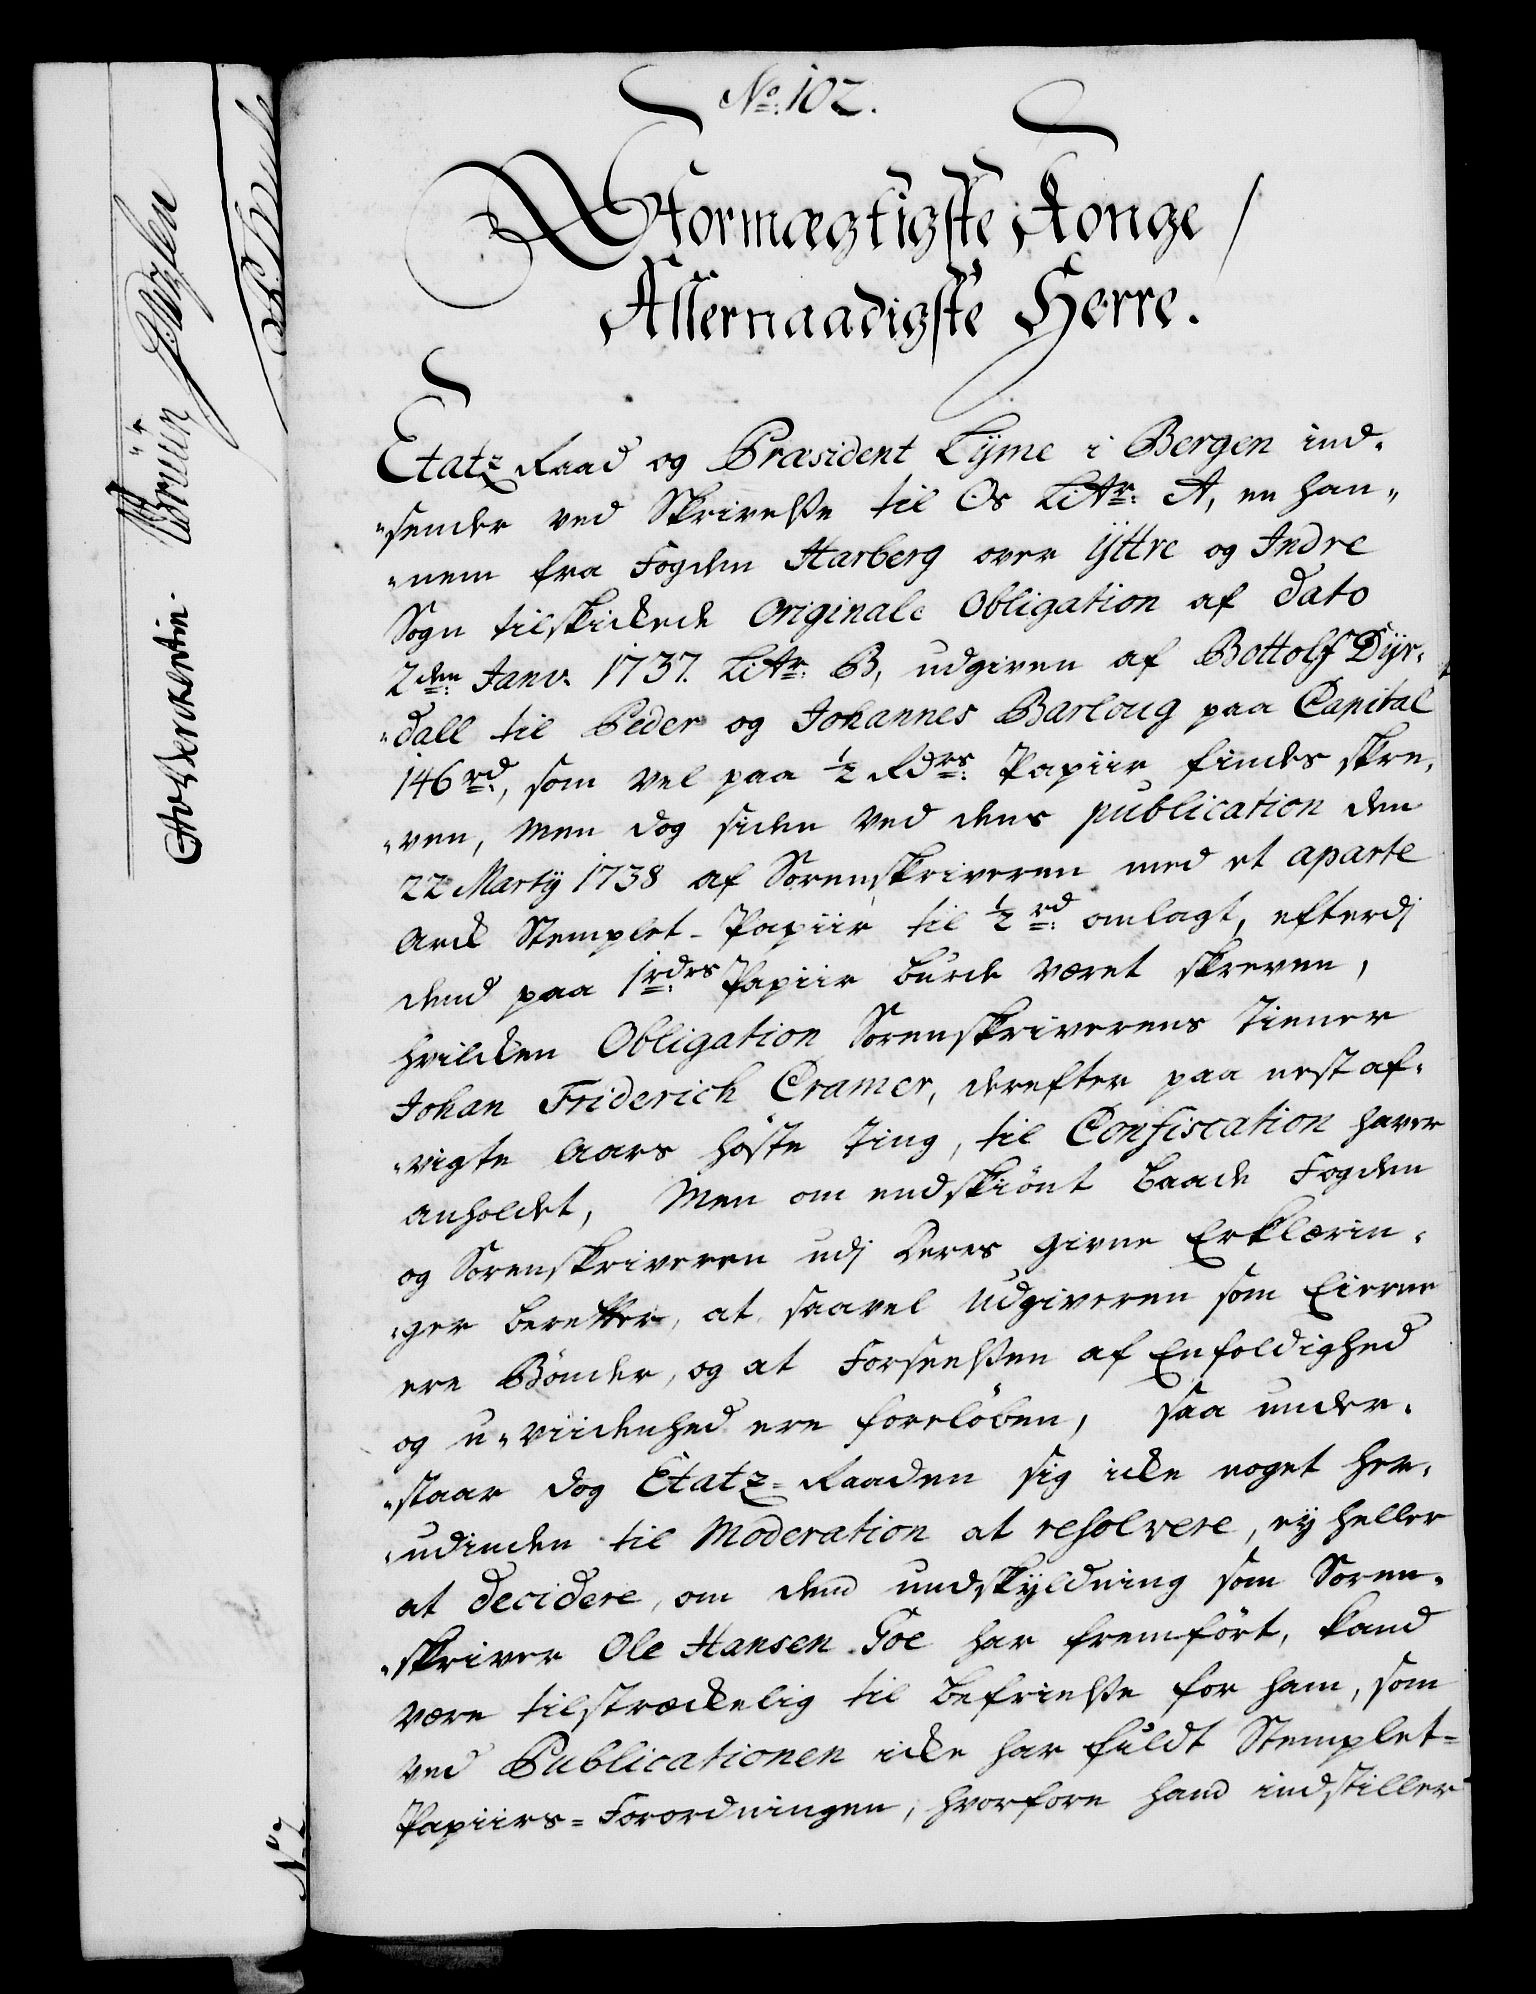 No. 102.
Stormægtigste Konge /
Allernaadigste Herre.
Etatz Raad og Præsident Lÿme i Bergen ind-
sender ved Skrivelße til Os Litr: A, en han-
nem fra Fogden Harberg over Ÿttre og Indre
Sogn tilskickede Originale Obligation af Dato
2den Janv. 1737. Litr: B, udgiven af Bottolf Dÿr-
dall til Peder og Johannes Barloug paa Capital
146 rd, som vel paa ½ Rdrs: Papiir findes skre-
ven, men dog siden ved dens publication den
22 Martÿ 1738 af Sorenskriveren med et aparte
Arck Stemplet-Papiir til ½ rd: omlagt, efterdj
dend paa 1 rdrs Papiir burde været skreven,
hvilcken Obligation Sorenskriverens Tiener
Johan Friderich Cramer, derefter paa nest af-
vigte Aars høste Ting, til Confiscation haver
anholdet, Men om endskiönt baade Fogden
og Sorenskriveren udj deres givne Erklærin-
ger beretter, at saavel Udgiveren som Eierne
ere Bönder, og at Forseelßen af Enfoldighed
og u-viidenhed ere forelöben, saa under-
staar dog Etatz-Raaden sig icke noget her-
udinden til Moderation at resolvere, ey heller
at decidere, om dend undskÿldning som Soren-
skriver Ole Hansen Toe har fremfört, kand
være tilstræckelig til befrielße for ham, som
ved Publicationen icke har fuldt Stemplet-
Papiirs-Forordningen, hvorfore hand indstiller